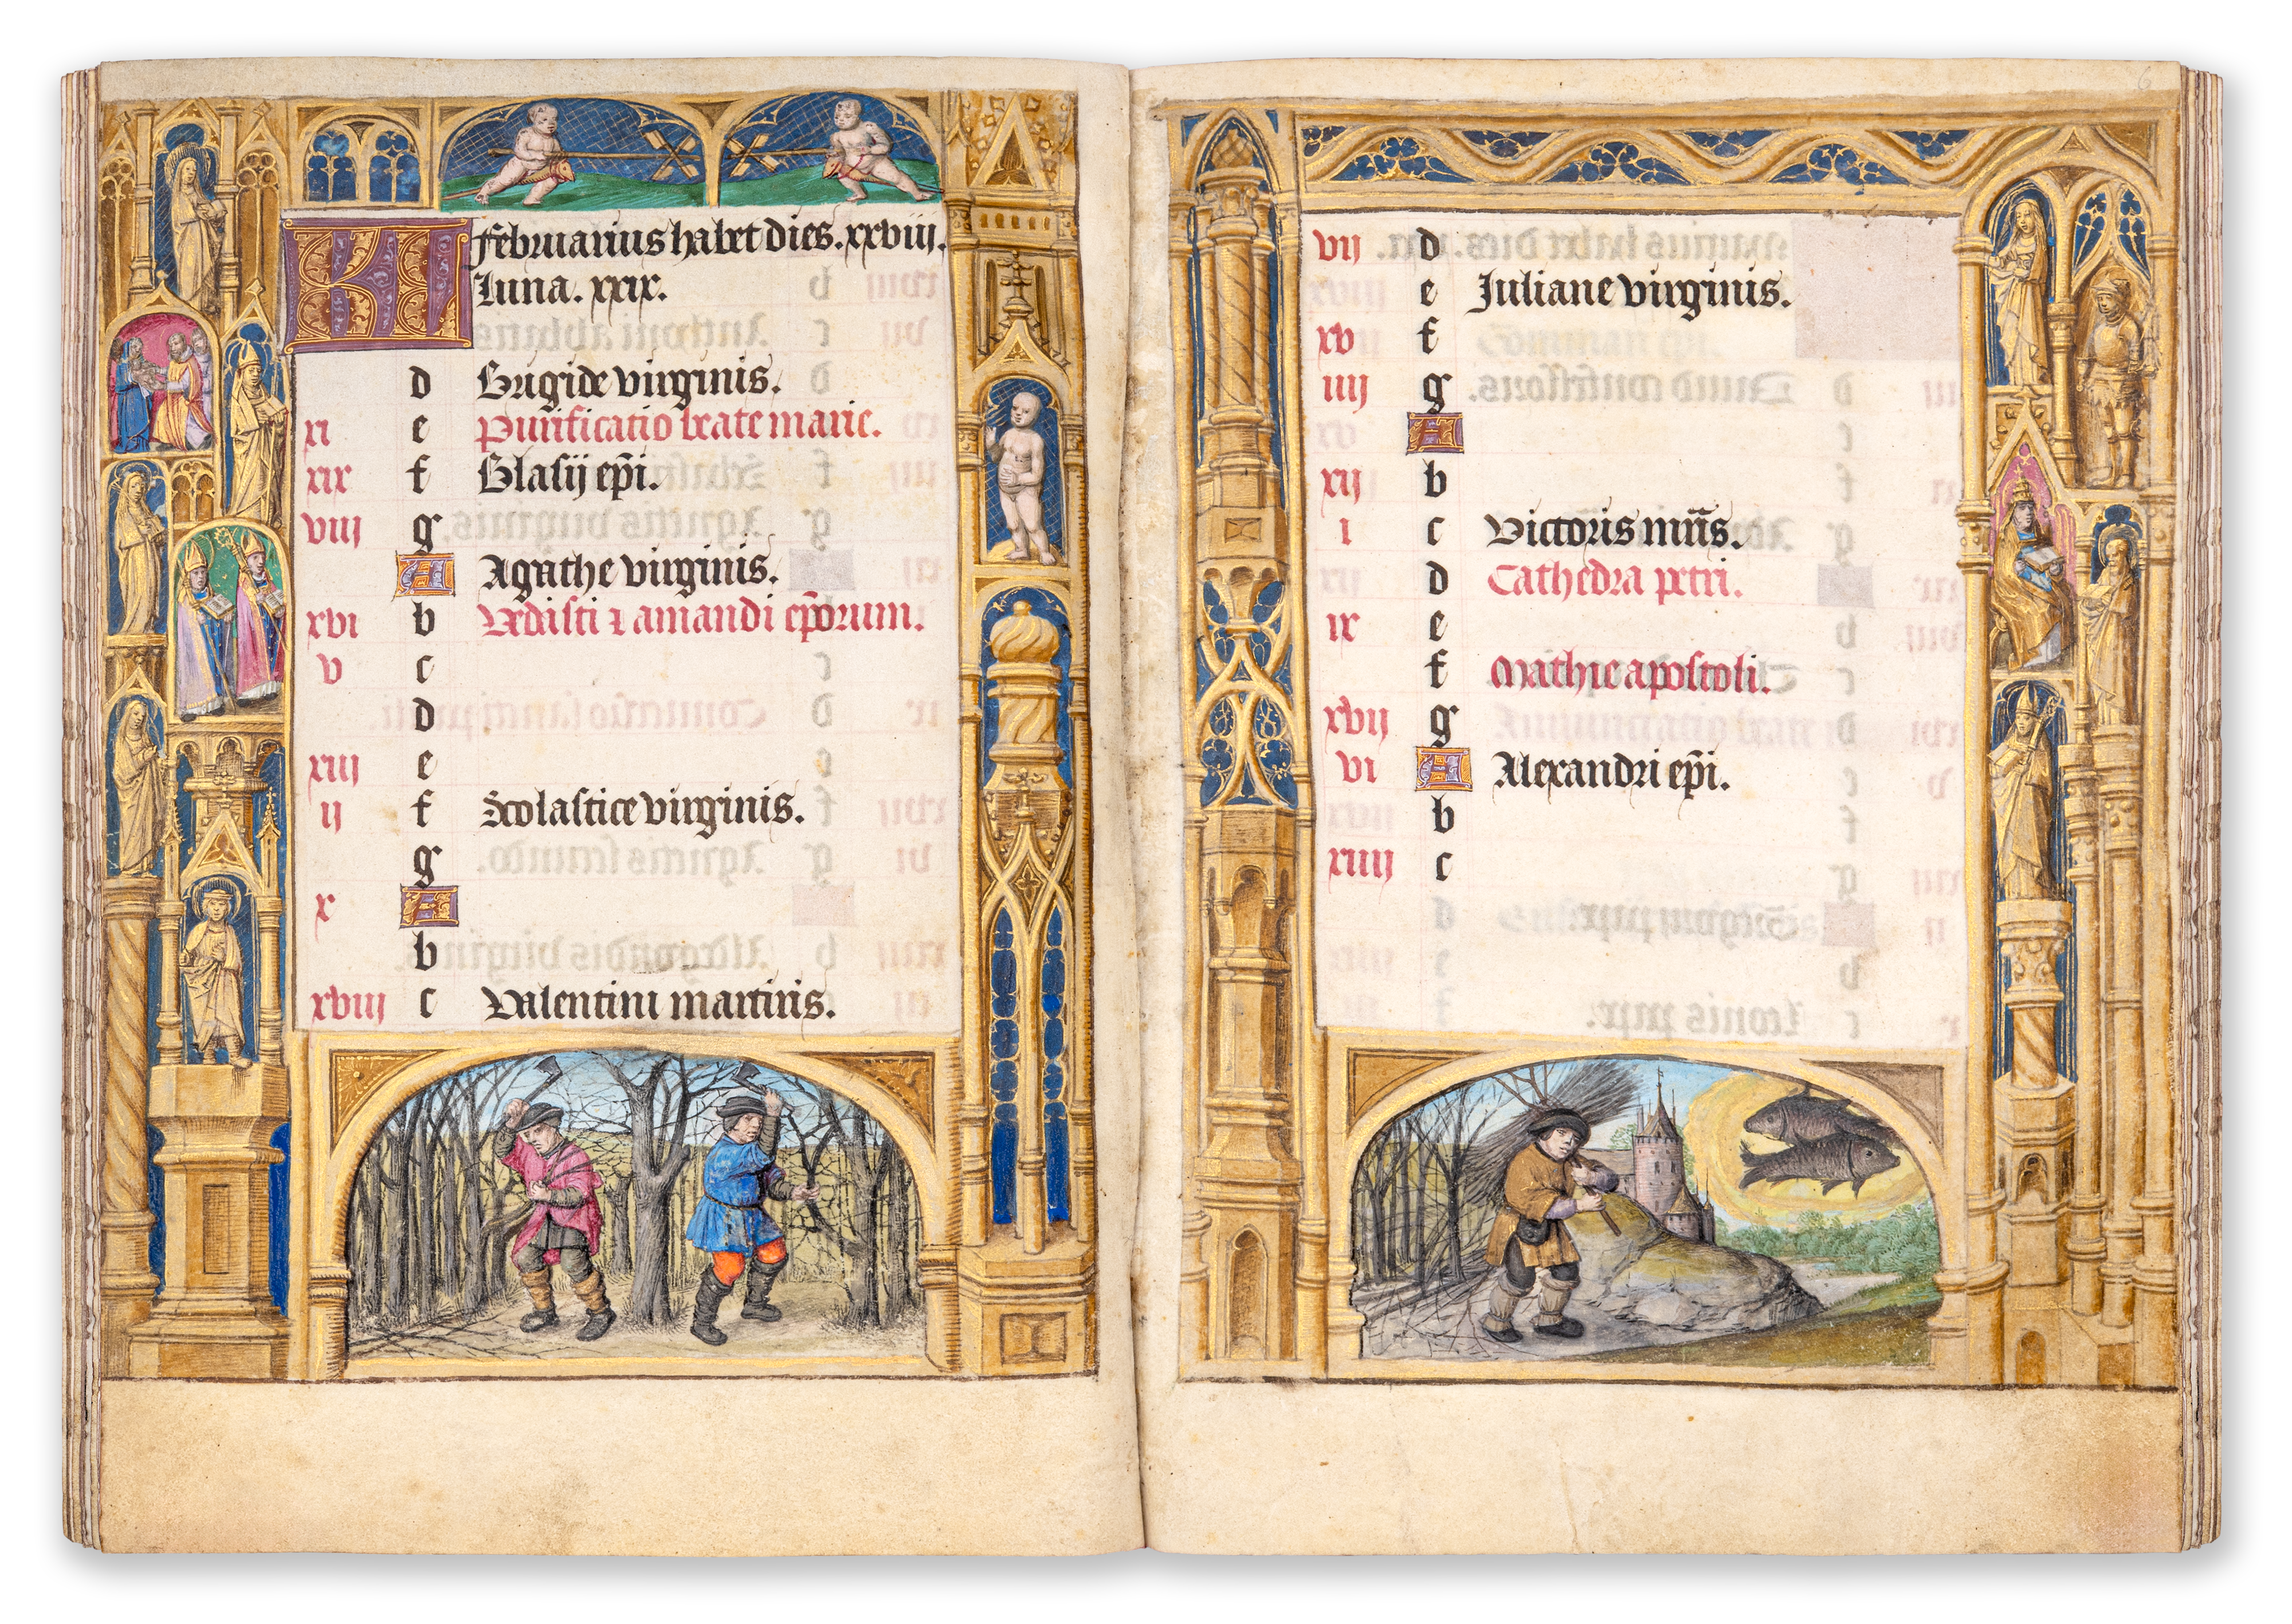 KL Februarius habet dies. xxviij.
Luna. xxix.
d Brigide virginis.
xi e Purificatio beate marie.
xix f Blasij ep̄i.
viij g
A Agathe virginis.
xvi b Vedasti ⁊ amandi ep̄orum.
v c
d
xiij e
ij f Scolastice virginis.
g
x A
b
xviij c Valentini martiris.
6
vij d
e Juliane virginis.
xv f
iiij g
A
xij b
i c Victoris mr̄is.
d Cathedra petri.
ix e
f Mathie apostoli.
xvij g
vi A Alexandri ep̄i.
b
xiiij c